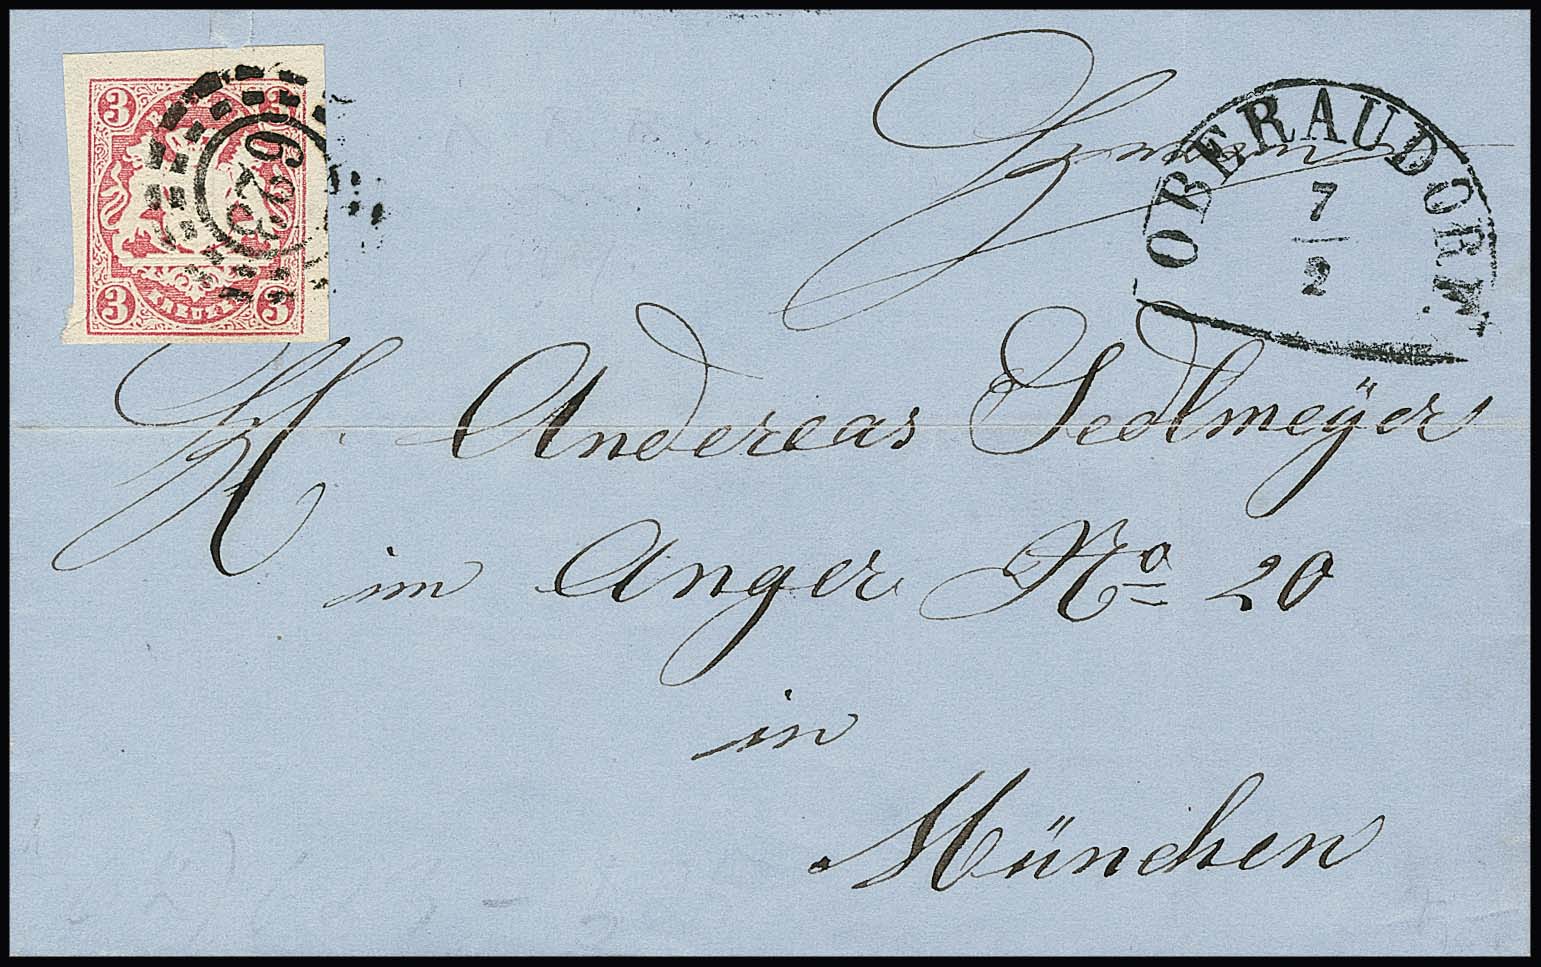 3
3
3
KREUZER
623
OBERAUDORF
7
2
H. Andereas Sedlmeÿer
im Anger No 20
in
München